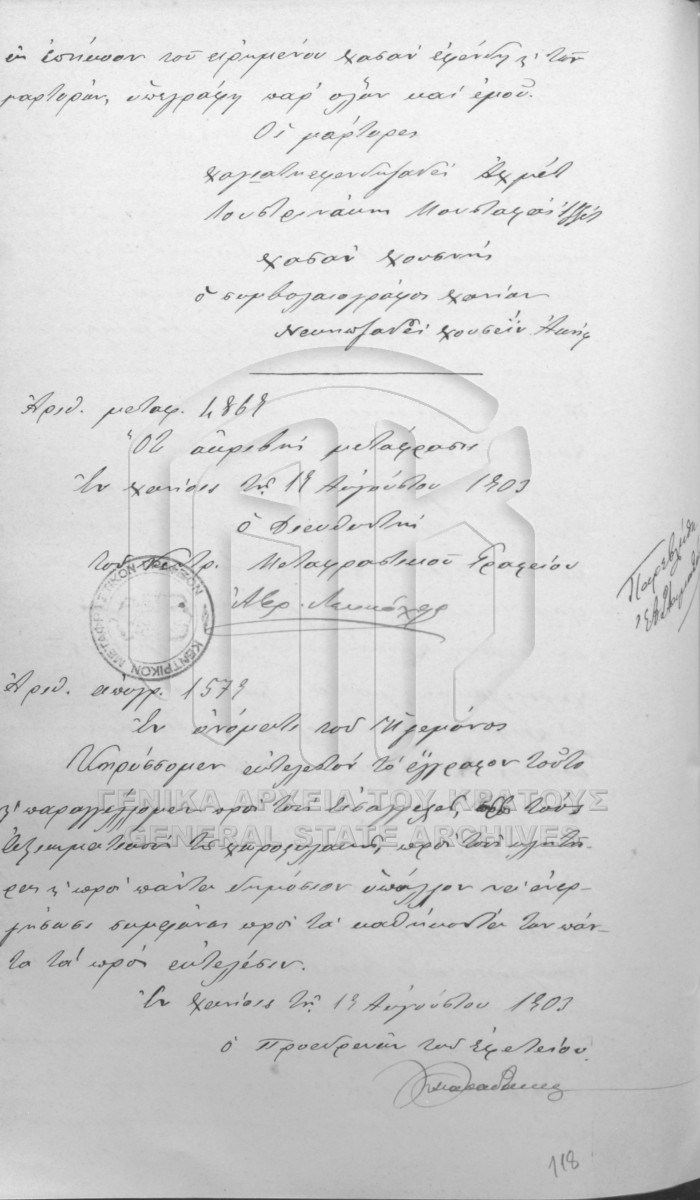 εἰς ἐπήκοον τοῦ εἰρημένου Χασὰν ἐφένδη κ' τῶν
μαρτύρων, ὑπεγράφη παρ' ὅλων καὶ ἐμοῦ.
Οἱ μάρτυρες
Ἀχμέτ
Μουσταφᾶ
Χασὰν Χουσνῆς
ὁ συμβολαιογράφος Χανίων
Χουσεΐν Ἀκήφ
Ἀριθ. μεταφ. 4869
Ὅτι ἀκριβὴς μετάφρασις
Ἐν Χανίοις τῇ 19 Αὐγούστου 1903
ὁ Διευθυντὴς
τοῦ Κεντρ. Μεταφραστικοῦ Γραφείου
ΚΕΝΤΡΙΚΟΝ ΜΕΤΑΦΡΑΣΤΙΚΟΝ ΓΡΑΦΕΙΟΝ
Ἀριθ. ἀπογρ. 1579
Ἐν ὀνόματι τοῦ Ἡγεμόνος
Κηρύσσομεν ἐκτελεστὸν τὸ ἔγγραφον τοῦτο
κ' παραγγέλλομεν πρὸς τοὺς Εἰσαγγελεῖς, τοὺς
ἀξιωματικοὺς τῆς χωροφυλακῆς, πρὸς τοὺς κλητῆ-
ρας κ' πρὸς πάντα δημόσιον ὑπάλληλον νὰ ἐνερ-
γήσωσι συμφώνως πρὸς τὰ καθήκοντά των πάν-
τα τὰ πρὸς ἐκτέλεσιν.
Ἐν Χανίοις τῇ 19 Αὐγούστου 1903
ὁ Προεδρεύων τοῦ Ἐφετείου
ΓΕΝΙΚΑ ΑΡΧΕΙΑ ΤΟΥ ΚΡΑΤΟΥΣ
GENERAL STATE ARCHIVES
118